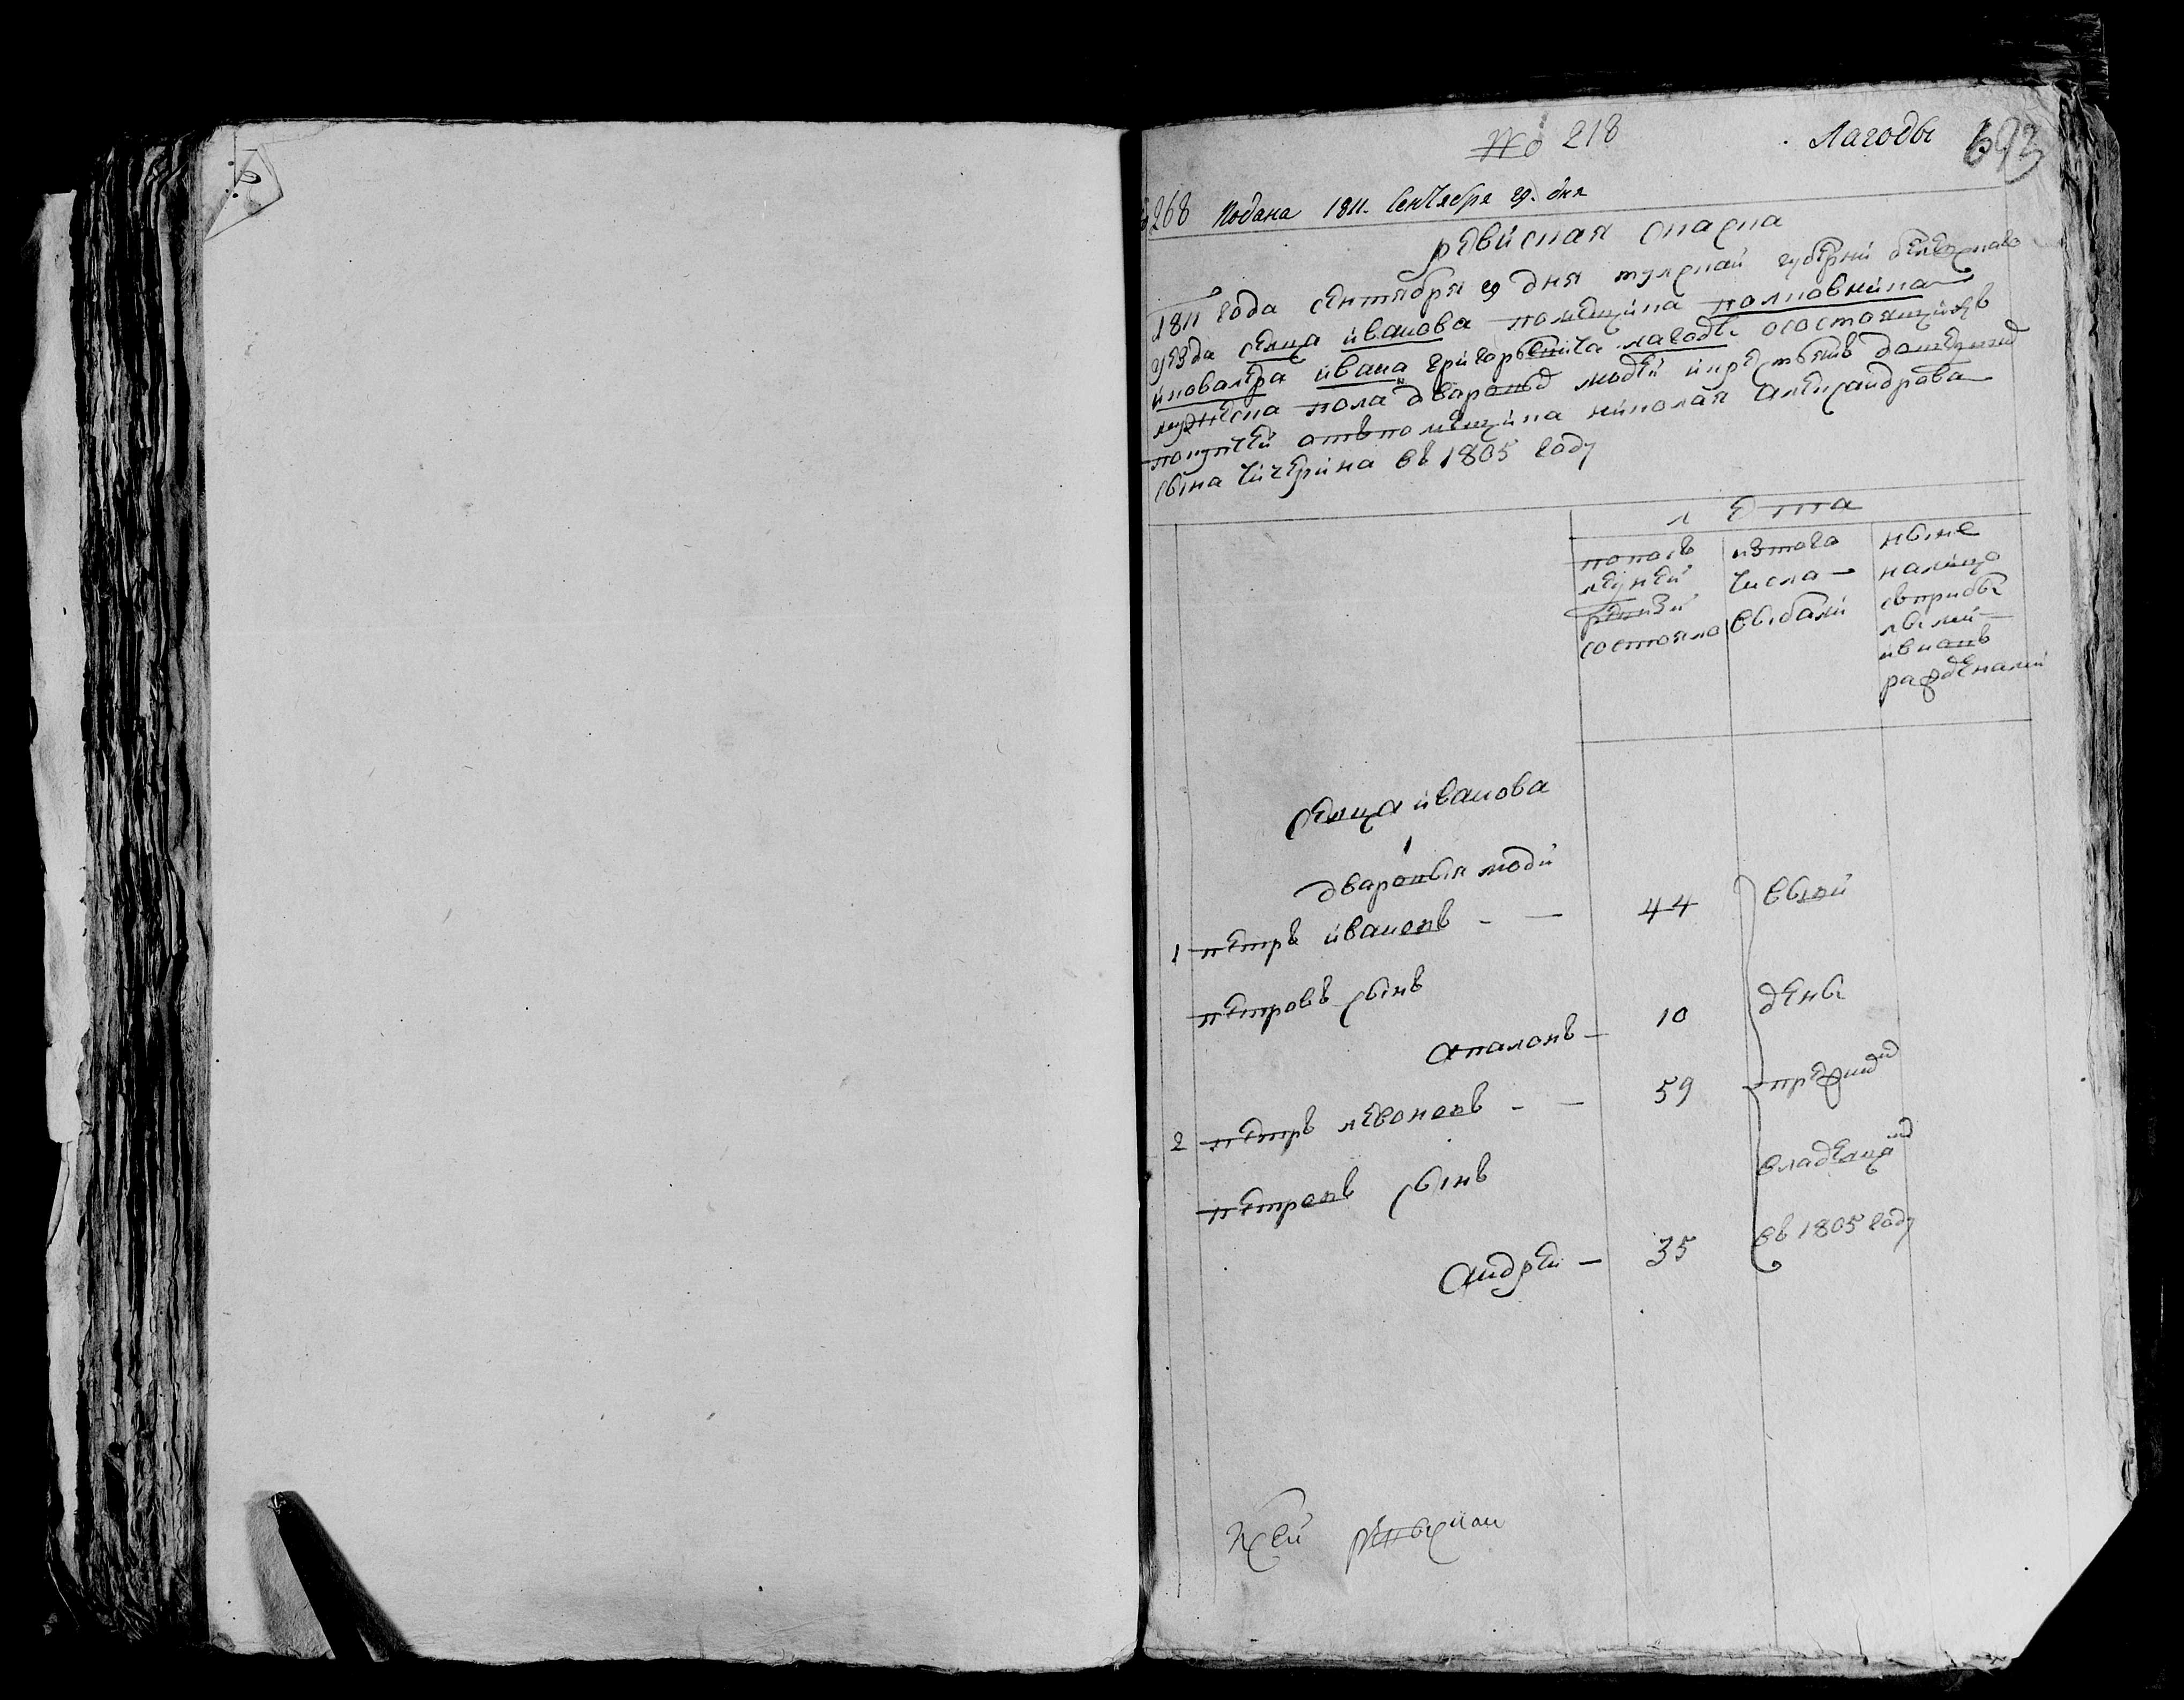 № 218
Лагоды 693
268 Подана 1811. Сентебря 29. дня
ревиская скаска
1811 года сентября 29 дня тулскай губерни белевскаго
уезда селца иванова помещика полковника
и кавалера ивана григорьевича лагоды о состоящихъ
мужеска пола дваровых людей и крестьянъ доставших
покупкей отъ помещика николая александрова
сына чичерина въ 1805 году
лета
по посъ
ледней
ревизи
состояло
исъ того
числа
выбали
ныне
налицо
съ прибы
лыми
и вновь
рожденами
селца иванова
дваровыя люди
1 петръ ивановъ - — 44 выки
петровъ сынъ
Апалонъ — 10 дены
2 петръ левоновъ - — 59 прежних
петровъ сынъ
владелцам
Андрей — 35 въ 1805 году
К сей